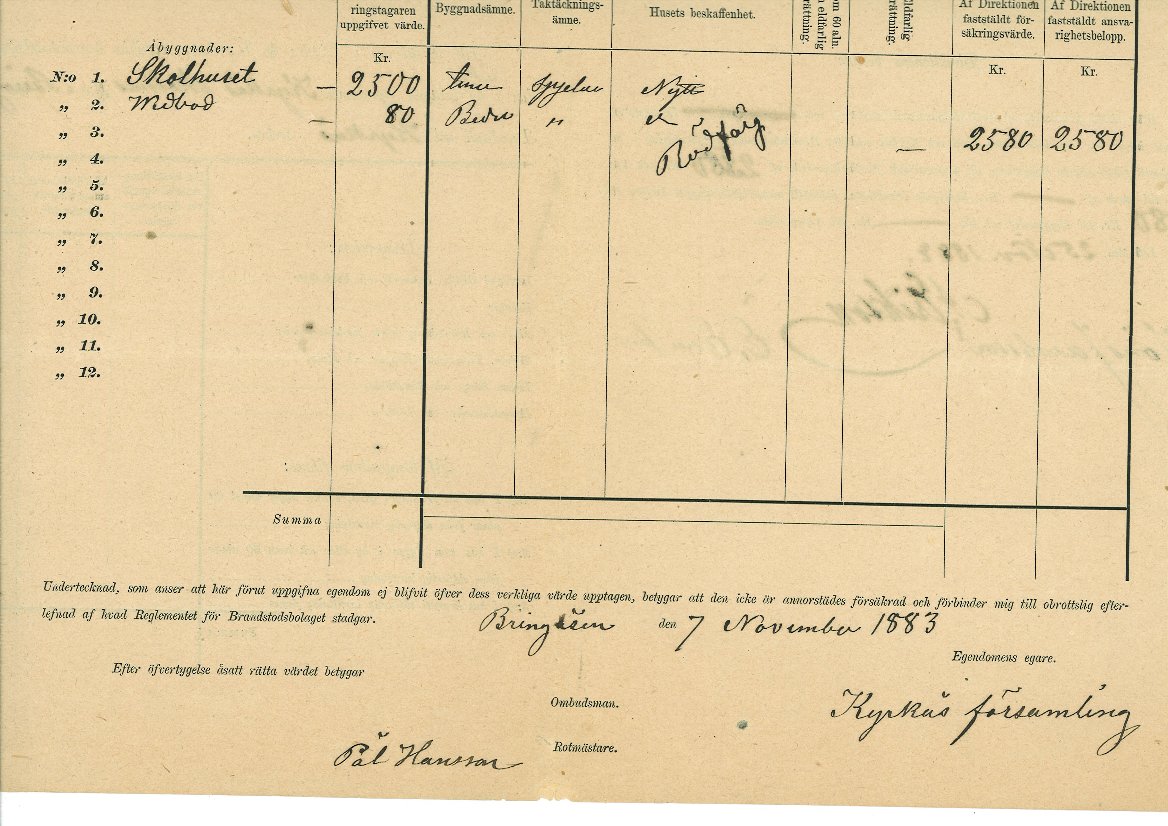 ringstagaren uppgifvet värde.
Byggnadsämne.
Taktäcknings-ämne.
Husets beskaffenhet.
om 60 aln eldfarlig rättning.
ldfarlig rättning.
Af Direktionen faststäldt för-säkringsvärde.
Af Direktionen faststäldt ansva-righetsbelopp.
Åbyggnader:
Kr. Kr. Kr.
N:o 1. Skolhuset — 2500 Nytt
„ 2. Vedbod — 80 „
„ 3. Rödfärg — 2580 2580
„ 4.
„ 5.
„ 6.
„ 7.
„ 8.
„ 9.
„ 10.
„ 11.
„ 12.
Summa
Undertecknad, som anser att här förut uppgifna egendom ej blifvit öfver dess verkliga värde upptagen, betygar att den icke är annorstädes försäkrad och förbinder mig till obrottslig efter-
lefnad af hvad Reglementet för Brandstodsbolaget stadgar.
Bringåsen den 7 November 1883
Egendomens egare.
Efter öfvertygelse åsatt rätta värdet betygar
Kyrkås församling
Ombudsman.
Rotmästare.
Pål Hansson